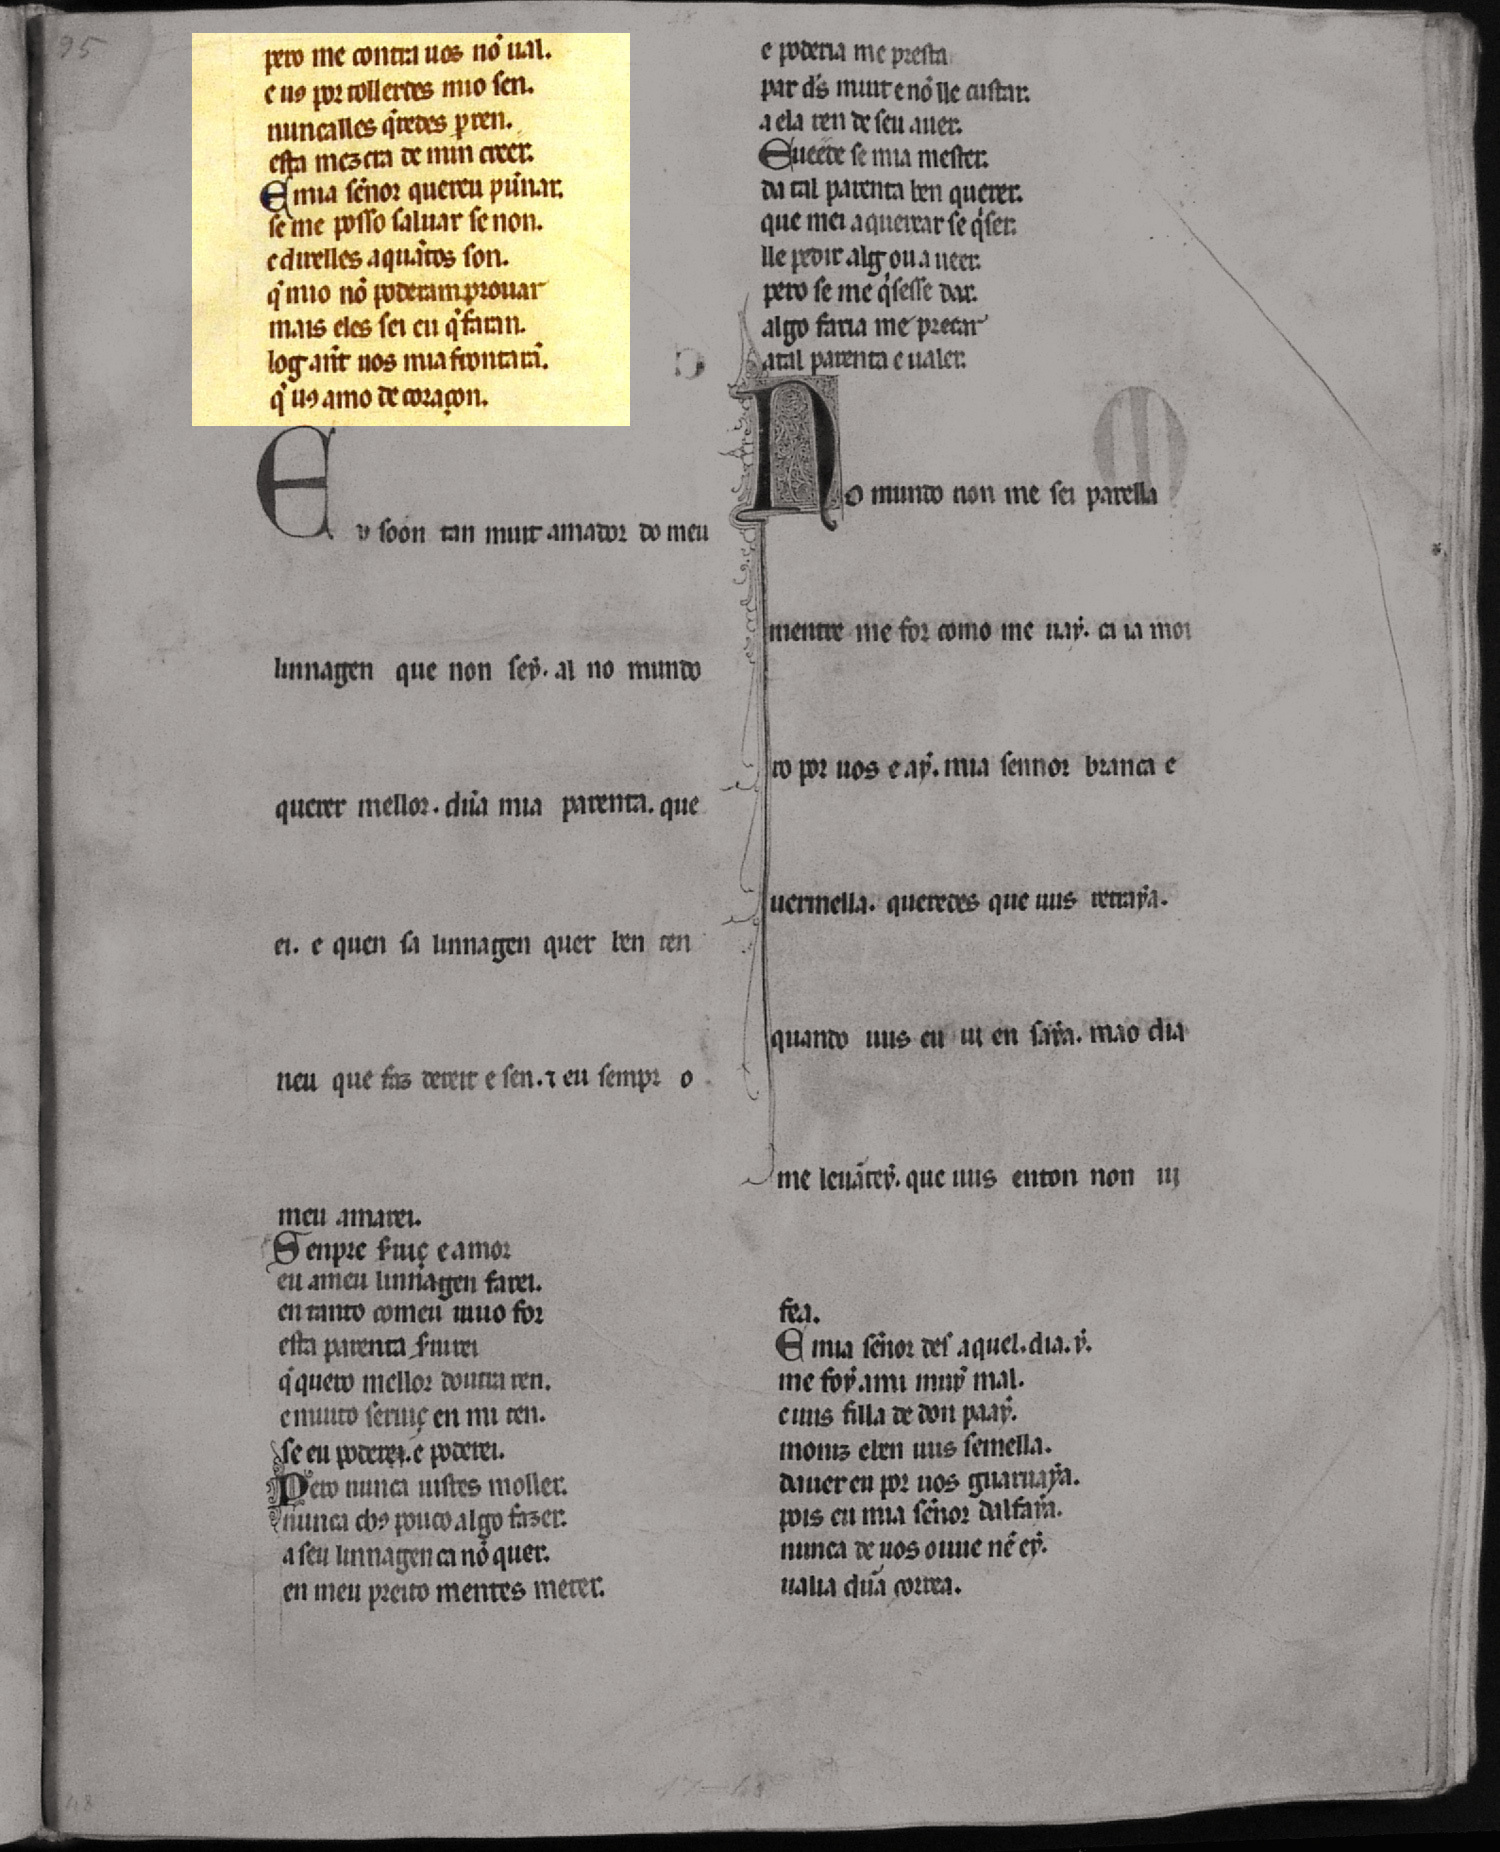 95
pero me contra uos nõ ual.
e uꝯ por tollerdes mio sen.
nuncalles q̃redes p̱ ren.
esta mezcra de min creer.
E mia sẽnor quereu pũnar.
se me posso saluar se non.
e direlles aquãtos son.
q̃ mio nõ poderam prouar
mais eles sei eu q̃ faran.
log ant̃ uos mia frontarã.
q̃ uꝯ amo de coraçon.
Eu soon tan muit amador do meu
linnagen que non seẏ. al no mundo
querer mellor. dũa mia parenta. que
ei. e quen sa linnagen quer ben ten
neu que faz dereit e sen. ⁊ eu sempr o
meu amarei.
Senpre s̃uiç e amor
eu a meu linnagen farei.
en tanto comeu uiuo for
esta parenta s̃uirei
q̃ quero mellor doutra ren.
e muito seruiç en mi ten.
se eu poderei. e poderei.
Pero nunca uistes moller.
nunca chꝯ pouco algo fazer.
a seu linnagen ca nõ quer.
en meu preito mentes meter.
e poderia me presta
par d̃s muit e nõ lle custar.
a ela ren de seu auer.
Sueede se mia mester.
da tal parenta ben querer.
que mei a queixar se q̃ser.
lle pedir alg ou a ueer.
pero se me q̃sesse dar.
algo faria me preçar
atal parenta e ualer.
No mundo non me sei parella
mentre me for como me uaẏ. ca ia moi
ro por uos e aẏ. mia sennor branca e
uermella. queredes que uus retraẏa.
quando uus eu ui en saẏa. mao dia
me leuãteẏ. que uus enton non ui
fea.
E mia sẽnor des aquel. dia. ẏ.
me foẏ. ami muiẏ mal.
e uus filla de don paaẏ.
moniz e ben uus semella.
dauer eu por uos guaruaẏa.
pois eu mia sẽnor dalfaẏa.
nunca de uos ouue nẽ eẏ.
ualia dũa correa.